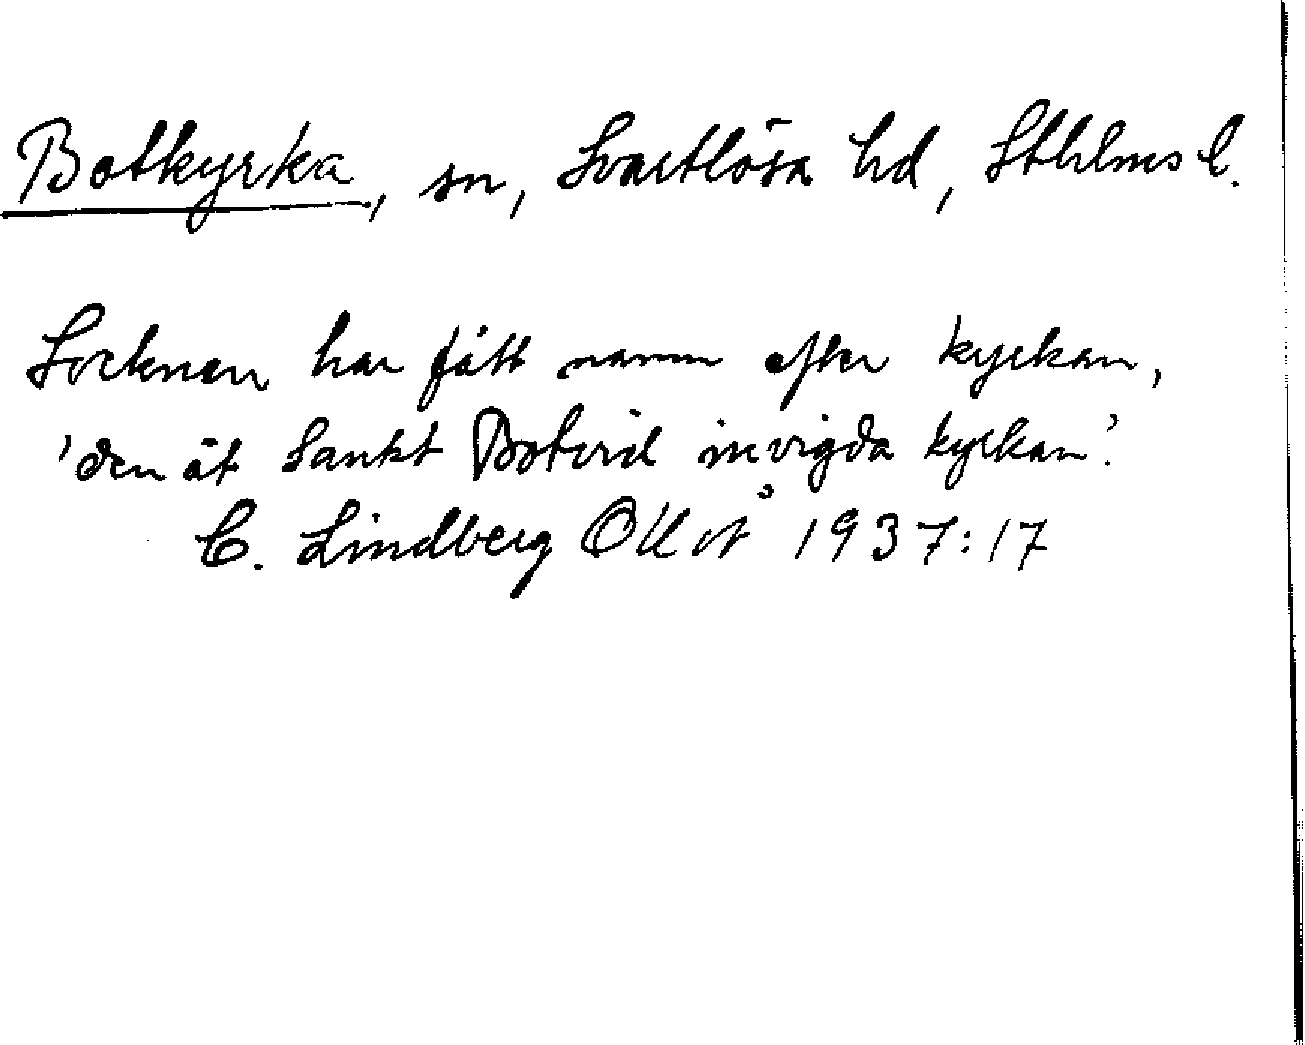 Botkyrka, sn, Svartlösa hd, Sthlms l.
Socknen har fått namn efter kyrkan,
'den åt Sankt Botvid invigda kyrkan'.
C. Lindberg 1937:17